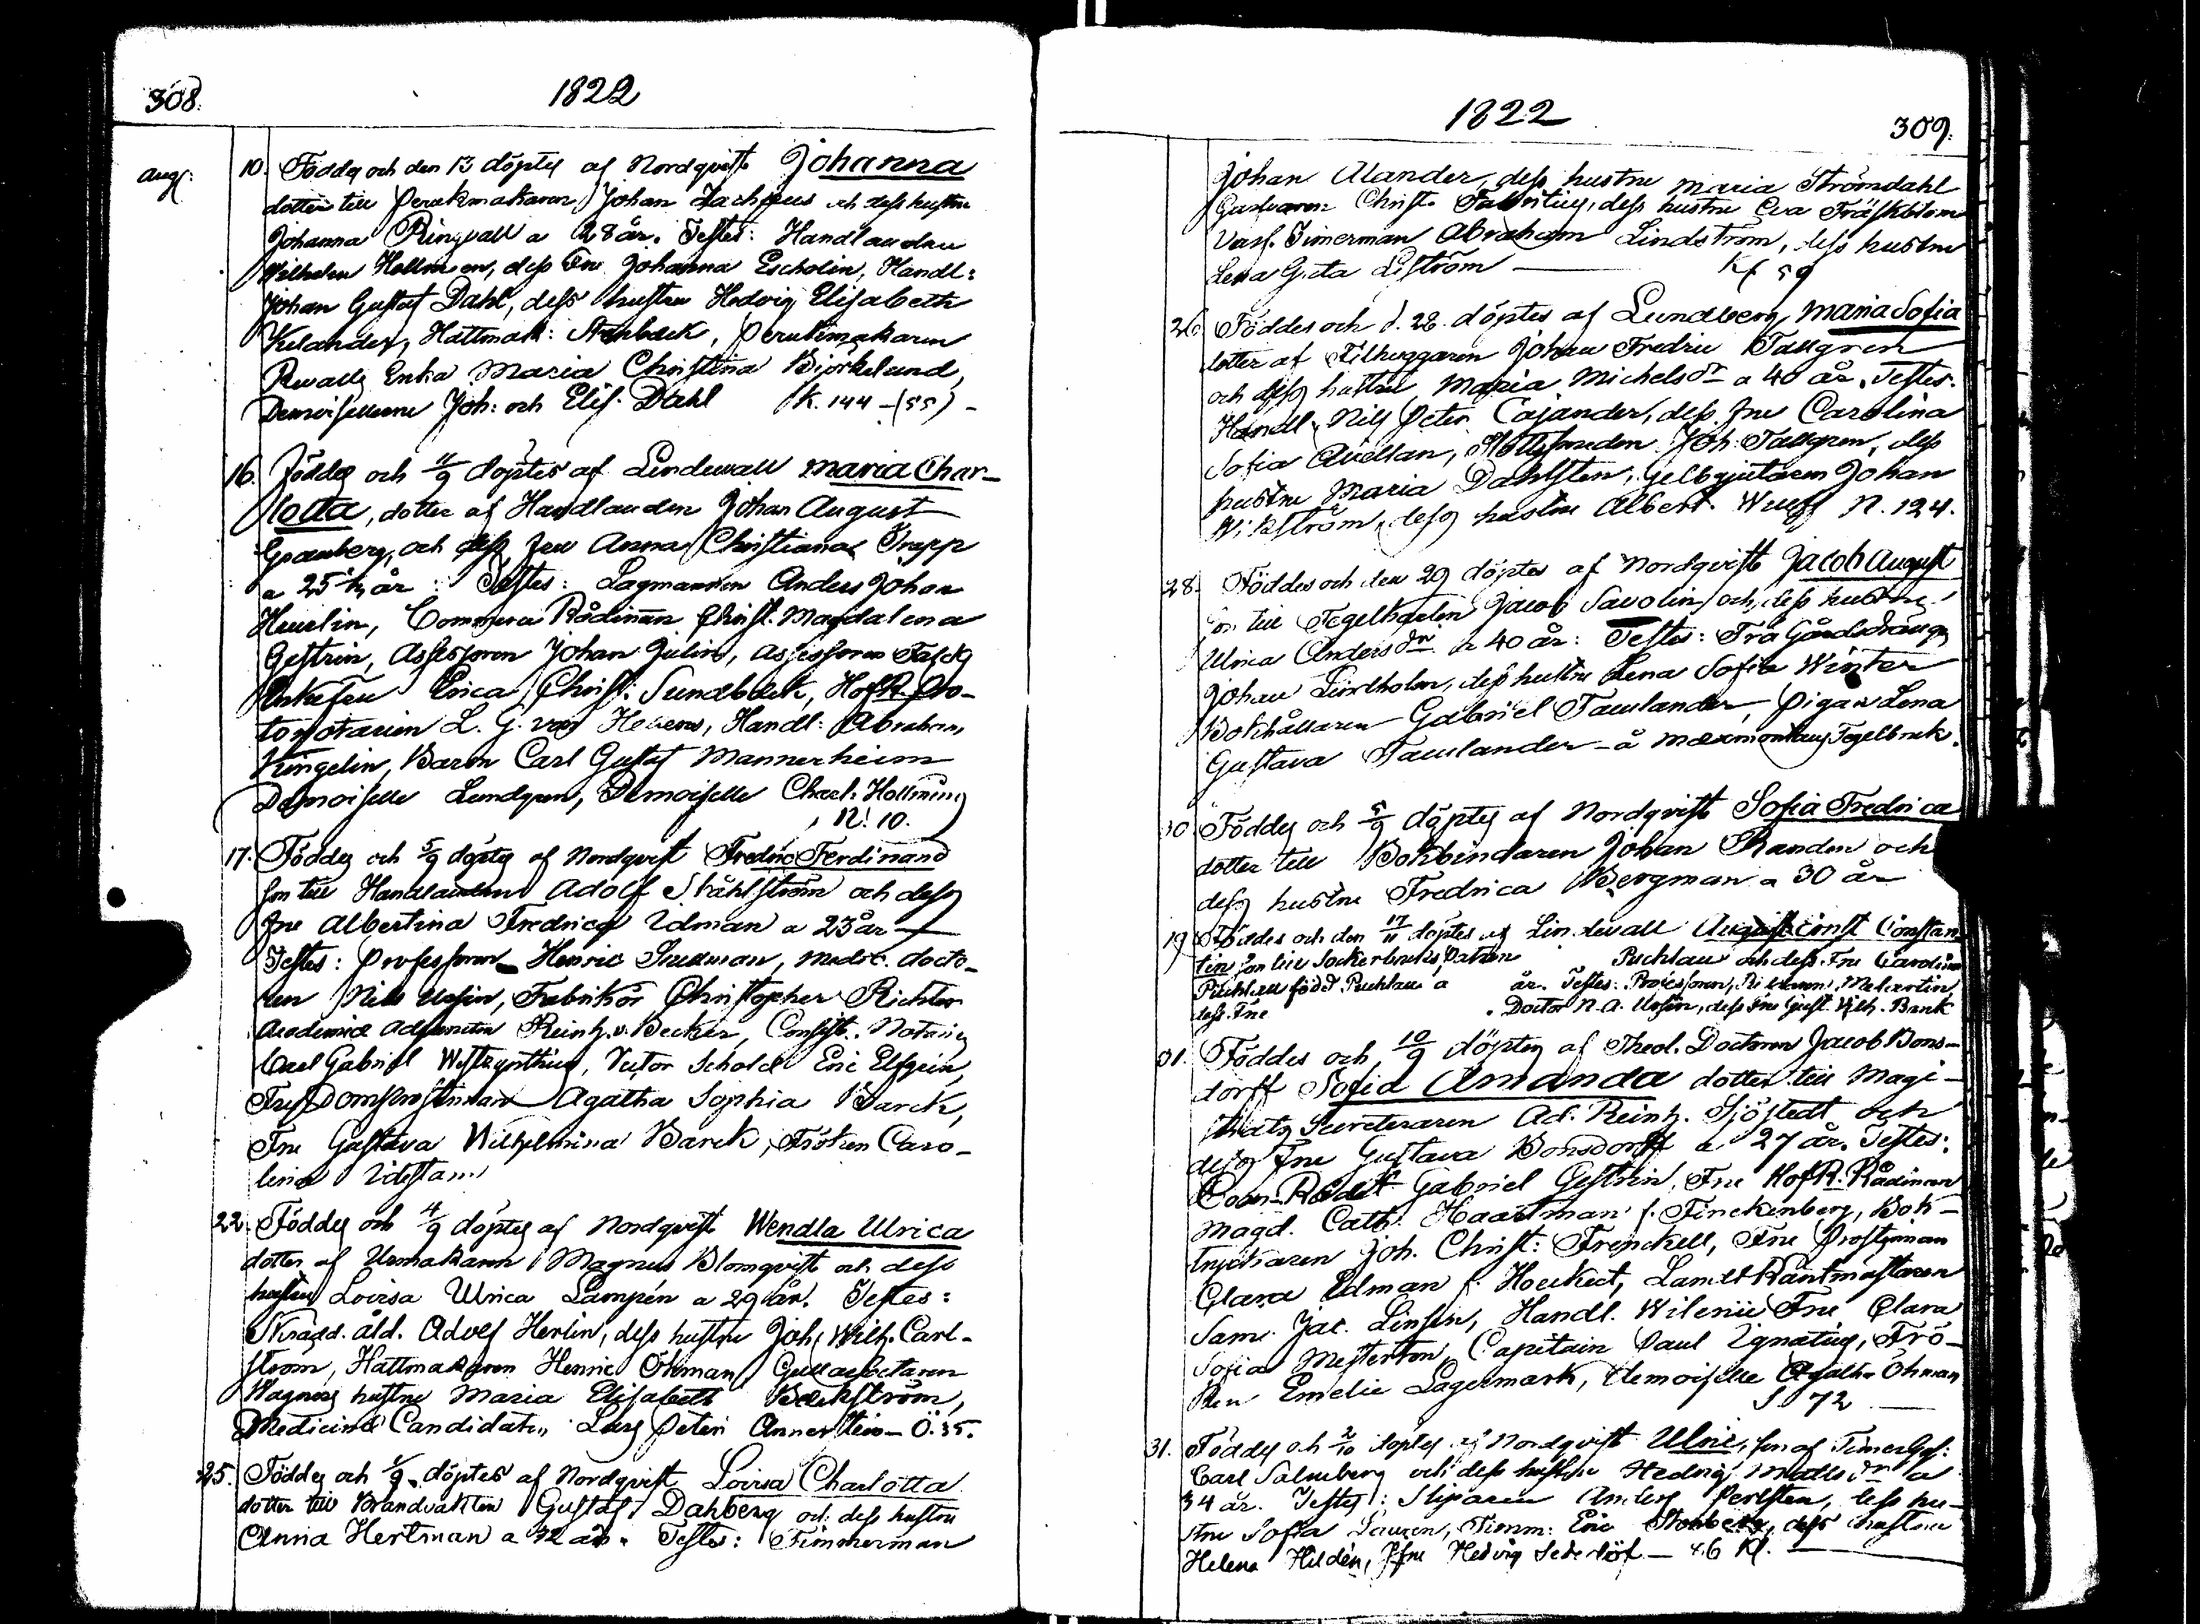 308.
1822
Aug:
10. Föddes och den 13 döptes af Nordqvist Johanna
dotter till Perukmakaren Johan Zachæus och dess hustru
Johanna Ringvall a 28 år. Testes: Handlanden
Wilhelm Hellm en, dess Fru Johanna Escholin, Handl:
Johan Gustaf Dahl, dess hustru Hedvig Elisabeth
Kelander, Hattmak: Stenbäck, Perukmakaren
Enka Maria Christina Björkelund,
Demoisellerne Joh: och Elis. Dahl K. 144 - (55) -
16. Föddes och 11/9 döptes af Lindewall Maria Char-
lotta, dotter af Handlanden Johan August
Granberg, och dess Fru Anna Christiana Trapp
a 25 1/2 år: Testes: Lagmannen Anders Johan
Heurlin, Commerce Rådinnan Christ. Magdalena
Gestrin, Assessoren Johan Julin, Assessoren
Enkefru Erica Christ: Sundbeck, HofR. Pro-
tonotarien L. G. von Hauen, Handl: Abraham
Kingelin, Baron Carl Gustaf Mannerheim
Demoiselle Lundgren, Demoiselle Charl: Hollming
N! 10.
17. Föddes och 5/9 döptes af Nordqvist Fredric Ferdinand
son till Handlanden Adolf Ståhlström och dess
Fru Albertina Fredrica Idman a 23 år
Testes: Professoren Henric Snellman, Medic. docto-
ren Nils Ursin, Fabrikör Christopher Richter
Academiæ Adjuncten Reinh. v. Becker, Consist. Notarien
Carl Gabriel Westzynthius, Rector Scholæ Eric Elfgrén,
Fru Domprostinnan Agatha Sophia Barck,
Fru Gustava Wilhelmina Barck, Fröken Caro-
lina Idestam
22. Föddes och 4/9 döptes af Nordqvist Wendla Ulrica
dotter af Urmakaren Magnus Blomqvist och dess
hustru Lovisa Ulrica Lampén a 29 år. Testes:
Skrädd. åld. Adolf Herlin, dess hustru Joh. Wilh. Carl-
ström, Hattmakaren Henric Öhman, Gullarbetaren
Wagners hustru Maria Elisabeth Bäckström,
Medicinæ Candidaten Lars Peter Annerstein - Ö. 35.
25. Föddes och 1/9 döptes af Nordqvist Lovisa Charlotta
dotter till Brandvakten Gustaf Dahlberg och dess hustru
Anna Hertman a 42 år. Testes: Timmerman
1822
309.
Johan Alander, dess hustru Maria Strömdahl
Garfvaren Christ. dess hustru Eva Träskblom
Varf. Timerman Abraham Lindström, dess hustru
Lena Greta Liström Kf 59
26. Föddes och d. 28. döptes af Lundberg Maria Sofia
dotter af Filhuggaren Johan Fredric Tallgren
och dess hustru Maria Michelsdr a 40 år. Testes:
Handl. Nils Peter Cajander, dess Fru Carolina
Sofia Avellan, Joh: Tallgren, dess
hustru Maria Dahlsten, Gelbgjutaren Johan
Wikström, dess hustru Albert. Wulff N. 124.
28. Föddes och den 29 döptes af Nordqvist Jacob August
son till Tegelkarlen Jacob Savolin och dess hustru
Ulrica Andersdr a 40 år: Testes: Trä Gårdsdrängen
Johan Lindholm, dess hustru Lena Sofia Winter
Bokhållaren Gabriel Tawlander, Pigan Lena
Gustava Tawlander - å Tegelbruk.
30. Föddes och 5/9 döptes af Nordqvist Sofia Fredrica
dotter till Bokbindaren Johan Randen och
dess hustru Fredrica Bergman a 30 år
19. Föddes och den 17/11 döptes af Lindevall August Ernst Constan-
tin son till Sockerbruks Patron Pischlau och dess Fru Carolina
Pischlau född Pischlau a år. Testes: Professoren, Riddaren, Melartin,
dess Fru . Doctor N. A. Ursin, dess Fru Gust. Wilh. Barck
31. Föddes och 10/9 döptes af Theol. Doctoren Jacob Bons-
dorff Sofia Amanda dotter till Magi-
strats Secreteraren Ad. Reinh. Sjöstedt och
dess Fru Gustava Bonsdorff a 27 år. Testes:
Com-Rådet Gabriel Gestrin, Fru HofR. Rådinnan
Magd. Cath. Haartman f. Finckenberg, Bok-
tryckaren Joh. Christ: Frenckell, Fru Prostinnan
Clara Idman f. Hoeckert, LandtRäntmästaren
Sam. Jac. Linsén, Handl. Fru Clara
Sofia Mesterton, Capitain Paul Ignatius, Frö-
ken Emelie Lagermark, Demoiselle Agatha Öhman
S 72
31. Föddes och 2/10 döptes af Nordqvist Ulric, son af TimerGes:
Carl Salmberg och dess hustru Hedvig Mattsdr a
34 år. Testes: Sliparen Anders Perlsten, dess hu-
stru Sofia Timm: Eric dess hustru
Helena Hildén, Jfru Hedvig Sederlöf - 46 Kl.